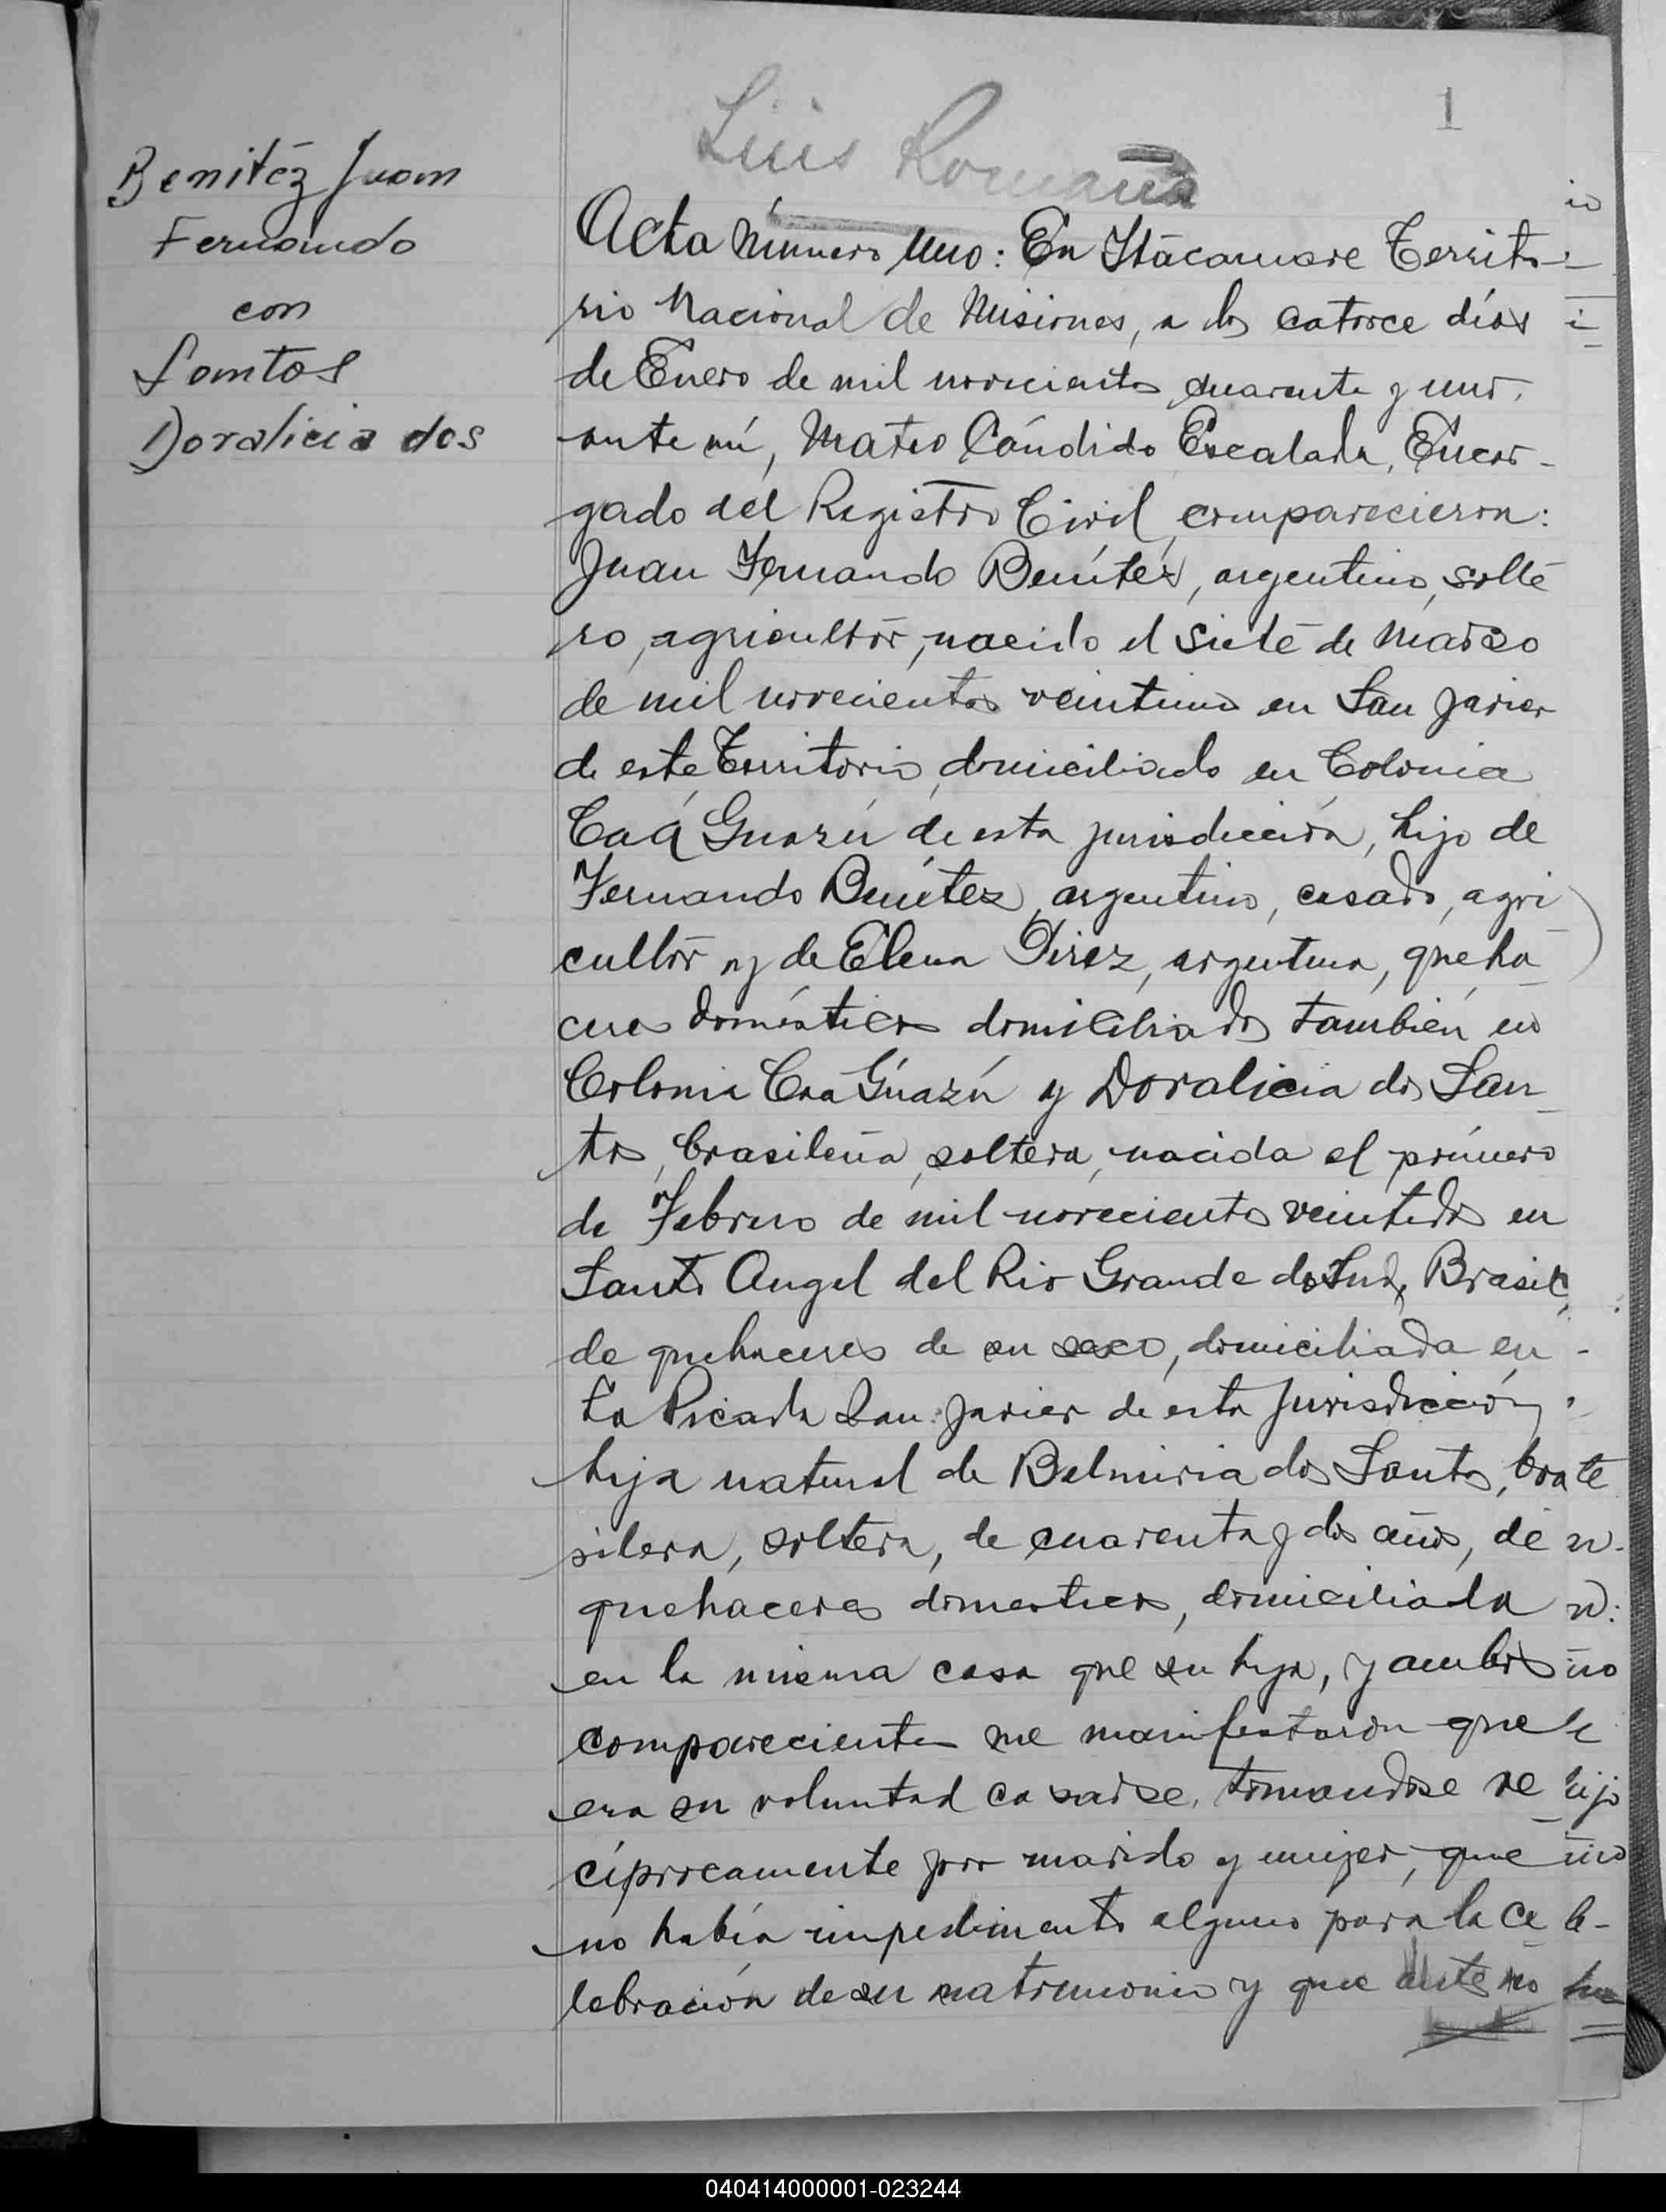 Luis Romaña
1
Benitéz Juan
Fernando
con
Santos
Doralicia dos
Acta número uno: En Itacaruare Territo-
rio Nacional de Misiones, a los catorce días
de Enero de mil novecientos cuarenta y uno,
ante mí, Mateo Cándido Escalada, Encar-
gado del Registro Civil, comparecieron:
Juan Fernando Benítez, argentino, solte
ro, agricultor, nacido el siete de Marzo
de mil novecientos veintiuno en San Javier
de este Territorio, domiciliado en Colonia
Caá Guazú de esta jurisdicción, hijo de
Fernando Benítez, argentino, casado, agri
cultor y de Elena Pirez, argentina, queha
ceres domésticos domiciliados también en
Colonia Caa Guazú y Doralicia dos San
tos, brasileña, soltera, nacida el primero
de Febrero de mil novecientos veintidos en
Santo Angel del Rio Grande do Sud, Brasil,
de quehaceres de su sexo, domiciliada en
La Picada San Javier de esta jurisdicción,
hija natural de Belmiria dos Santos, bra
silera, soltera, de cuarenta y dos años, de
quehaceres domesticos, domiciliada
en la misma casa que su hija, y ambos
comparecientes me manifestaron que
era su voluntad casarse, tomandose re
ciprocamente por marido y mujer, que
no había impedimento alguno para la ce
lebración de su matrimonio y que ante no
040414000001-023244